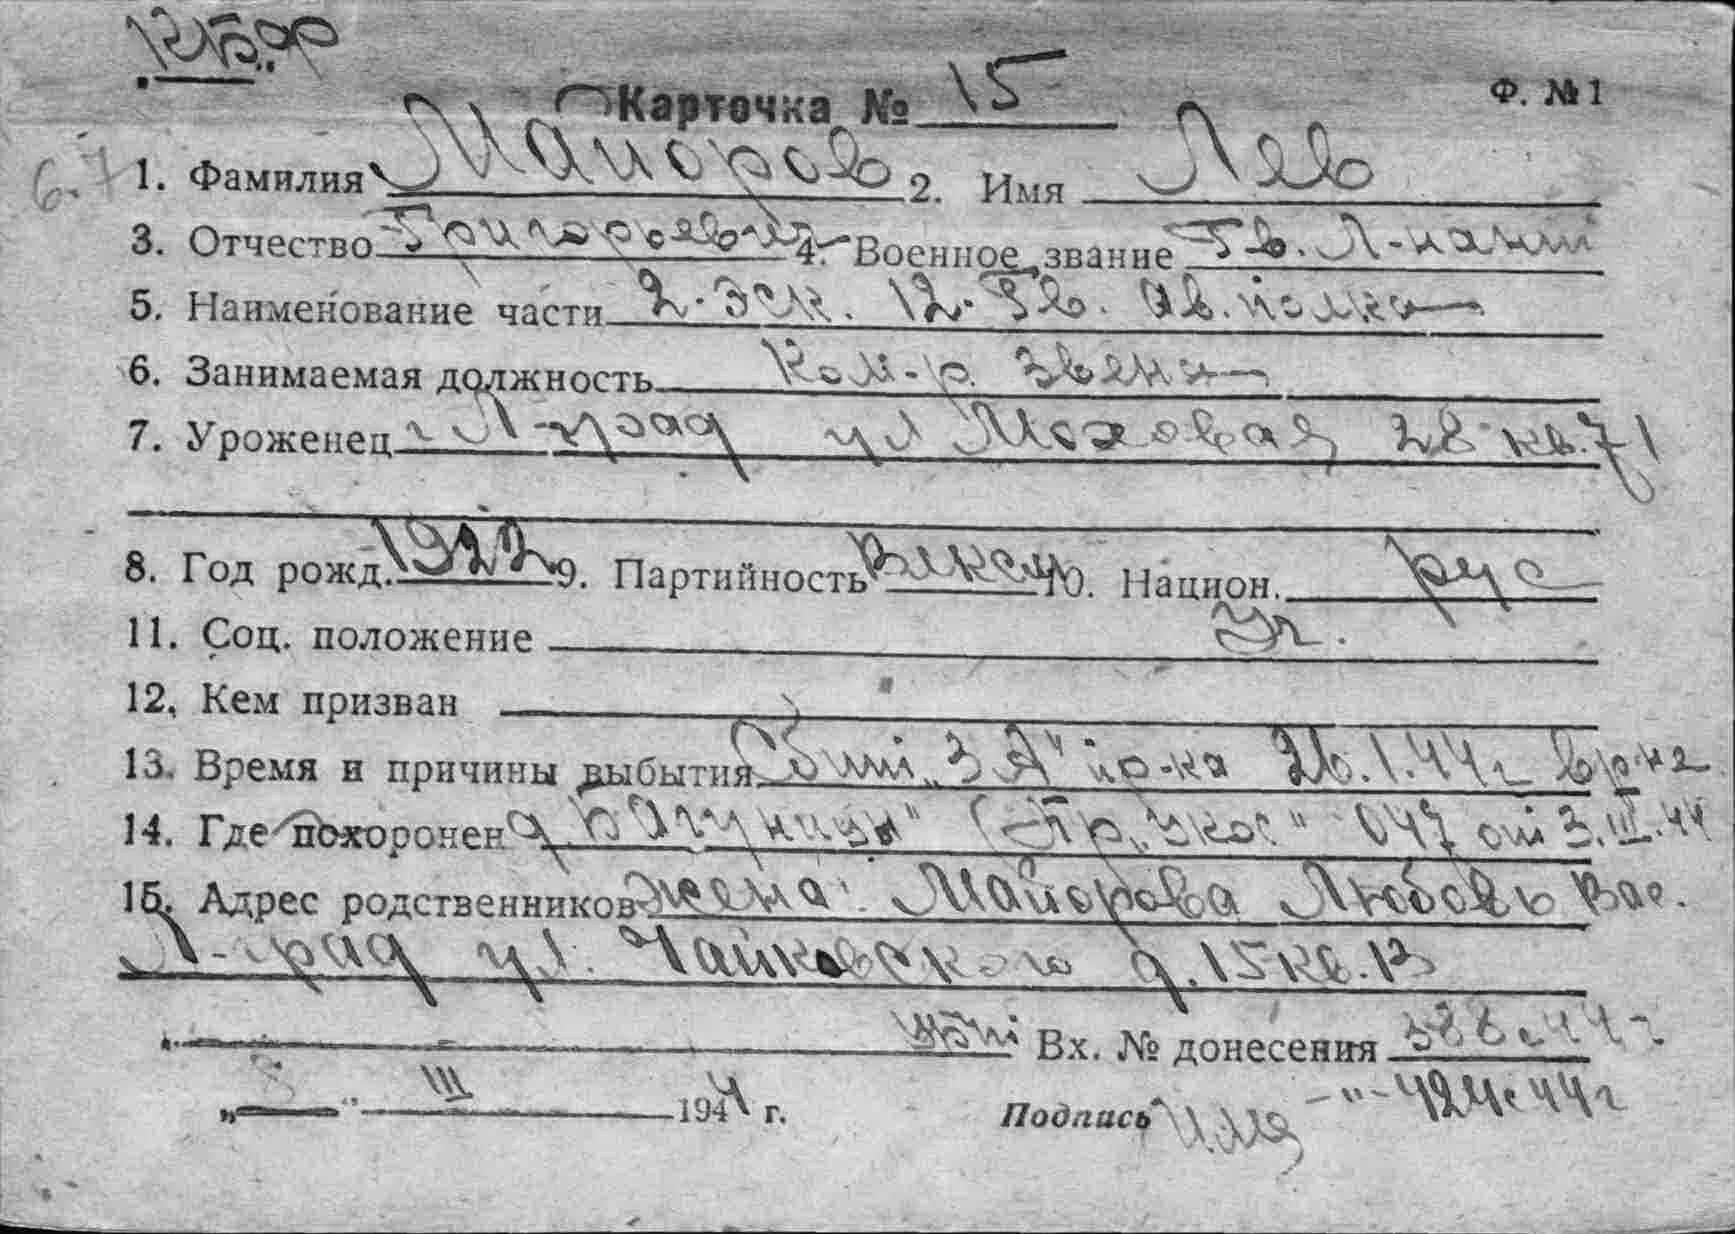 КБФ
Карточка № 15 Ф. № 1
6.7
1. Фамилия Майоров 2. Имя Лев
3. Отчество Григорьевич 4. Военное звание Гв. Л-нант
5. Наименование части 2. Эск. 12. Гв. Ав. полка
6. Занимаемая должность Ком-р. звена
7. Уроженец г Л-град ул Моховая 28 кв. 71
8. Год рожд. 1922 9. Партийность Влксм 10. Национ. рус
11. Соц. положение Уч.
12. Кем призван
13. Время и причины выбытия Сбит „ЗА" пр-ка 26.1.44г в р-не
14. Где похоронен д. Вагуницы" (Пр. „Укос" 047 от 3.III.44
15. Адрес родственников жена: Майорова Любовь Вас.
Л-град ул. Чайковского д. 15 кв. 13
Вх. № донесения 388с 44г
„8" III 1944 г. Подпись -"- 424с 44г